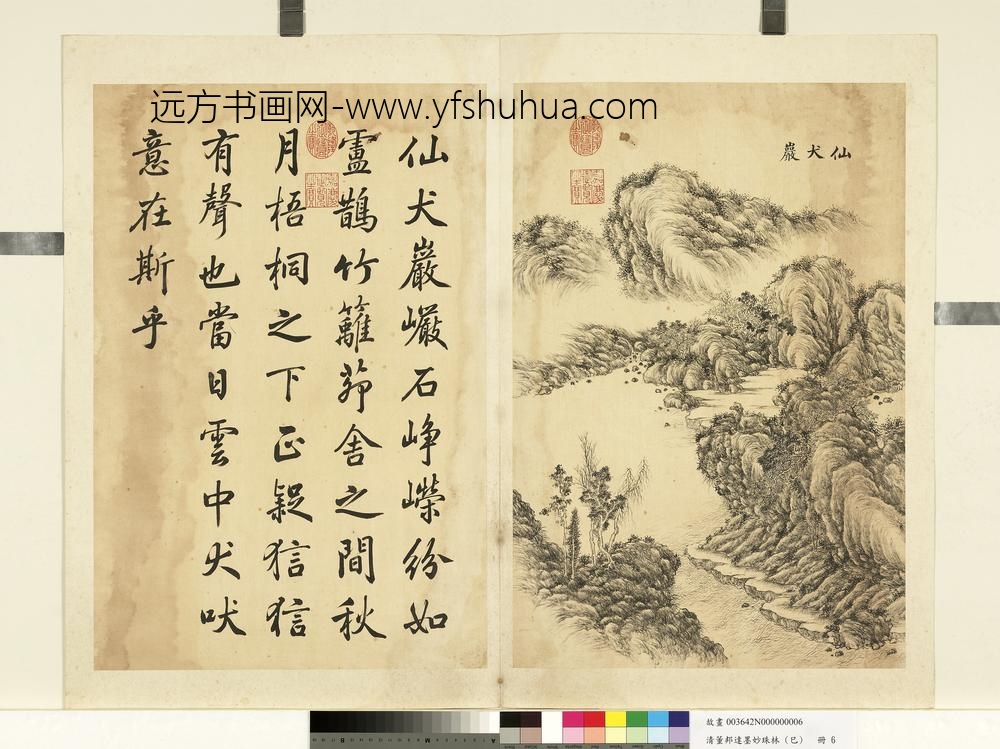 远方书画网-www.yfshuhua.com
仙犬巖
仙犬巖巖石崢嶸紛如
盧鵲竹籬茆舍之間秋
月梧桐之下正疑狺狺
有聲也當日雲中犬吠
意在斯乎
故畫 003642N000000006
清董邦達墨妙珠林（巳） 冊 6